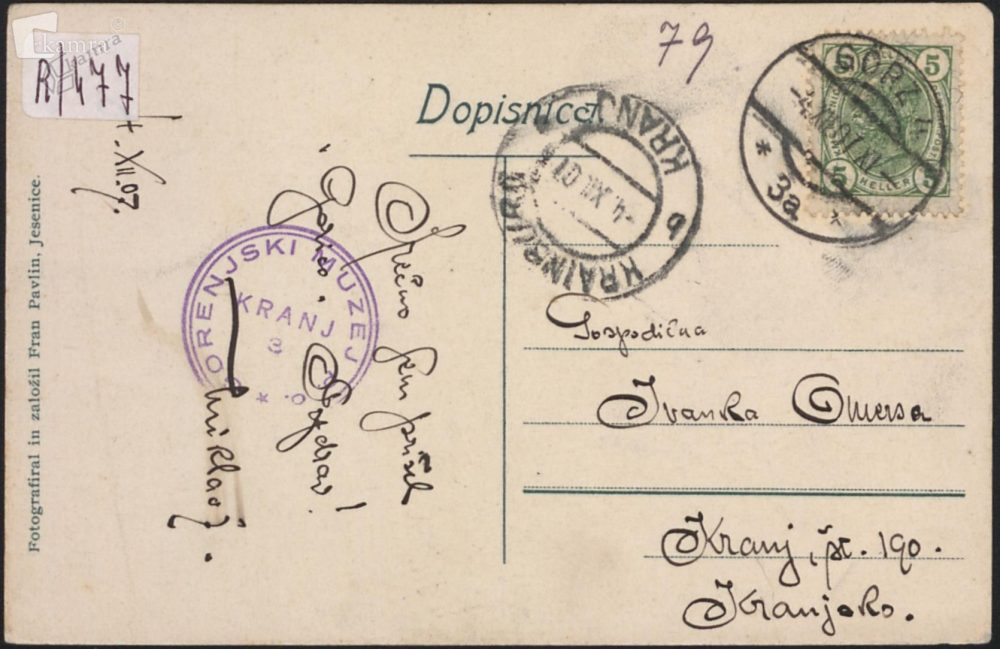 kamra
R/477
79
Dopisnica
GÖRZ
3a
5
5
HELLER
KRAINBURG
KRANJ
4 XII 07
b
4. XII. 07.
Srečno sem prišel
Pozdrav!
Miklavž.
GORENJSKI MUZEJ
KRANJ
Gospodična
Ivanka Omersa
Kranj, št. 190.
Kranjsko.
Fotografiral in založil Fran Pavlin, Jesenice.